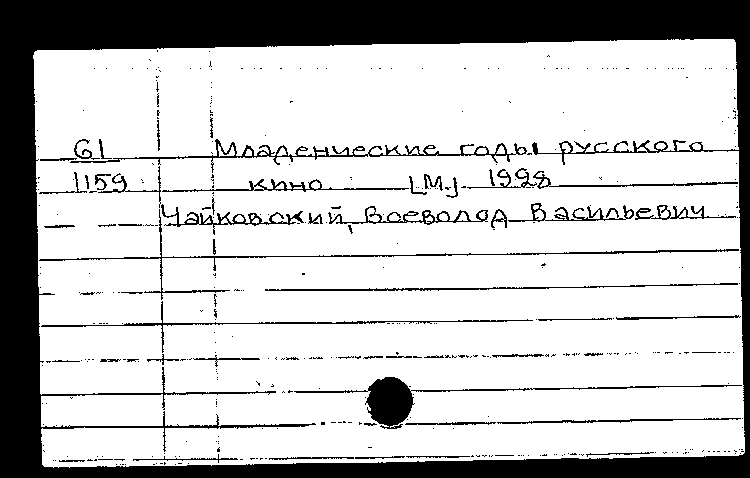 61 Младенческие годы русского
1159 кино. [М.] 1928
Чайковский, Всеволод Васильевич